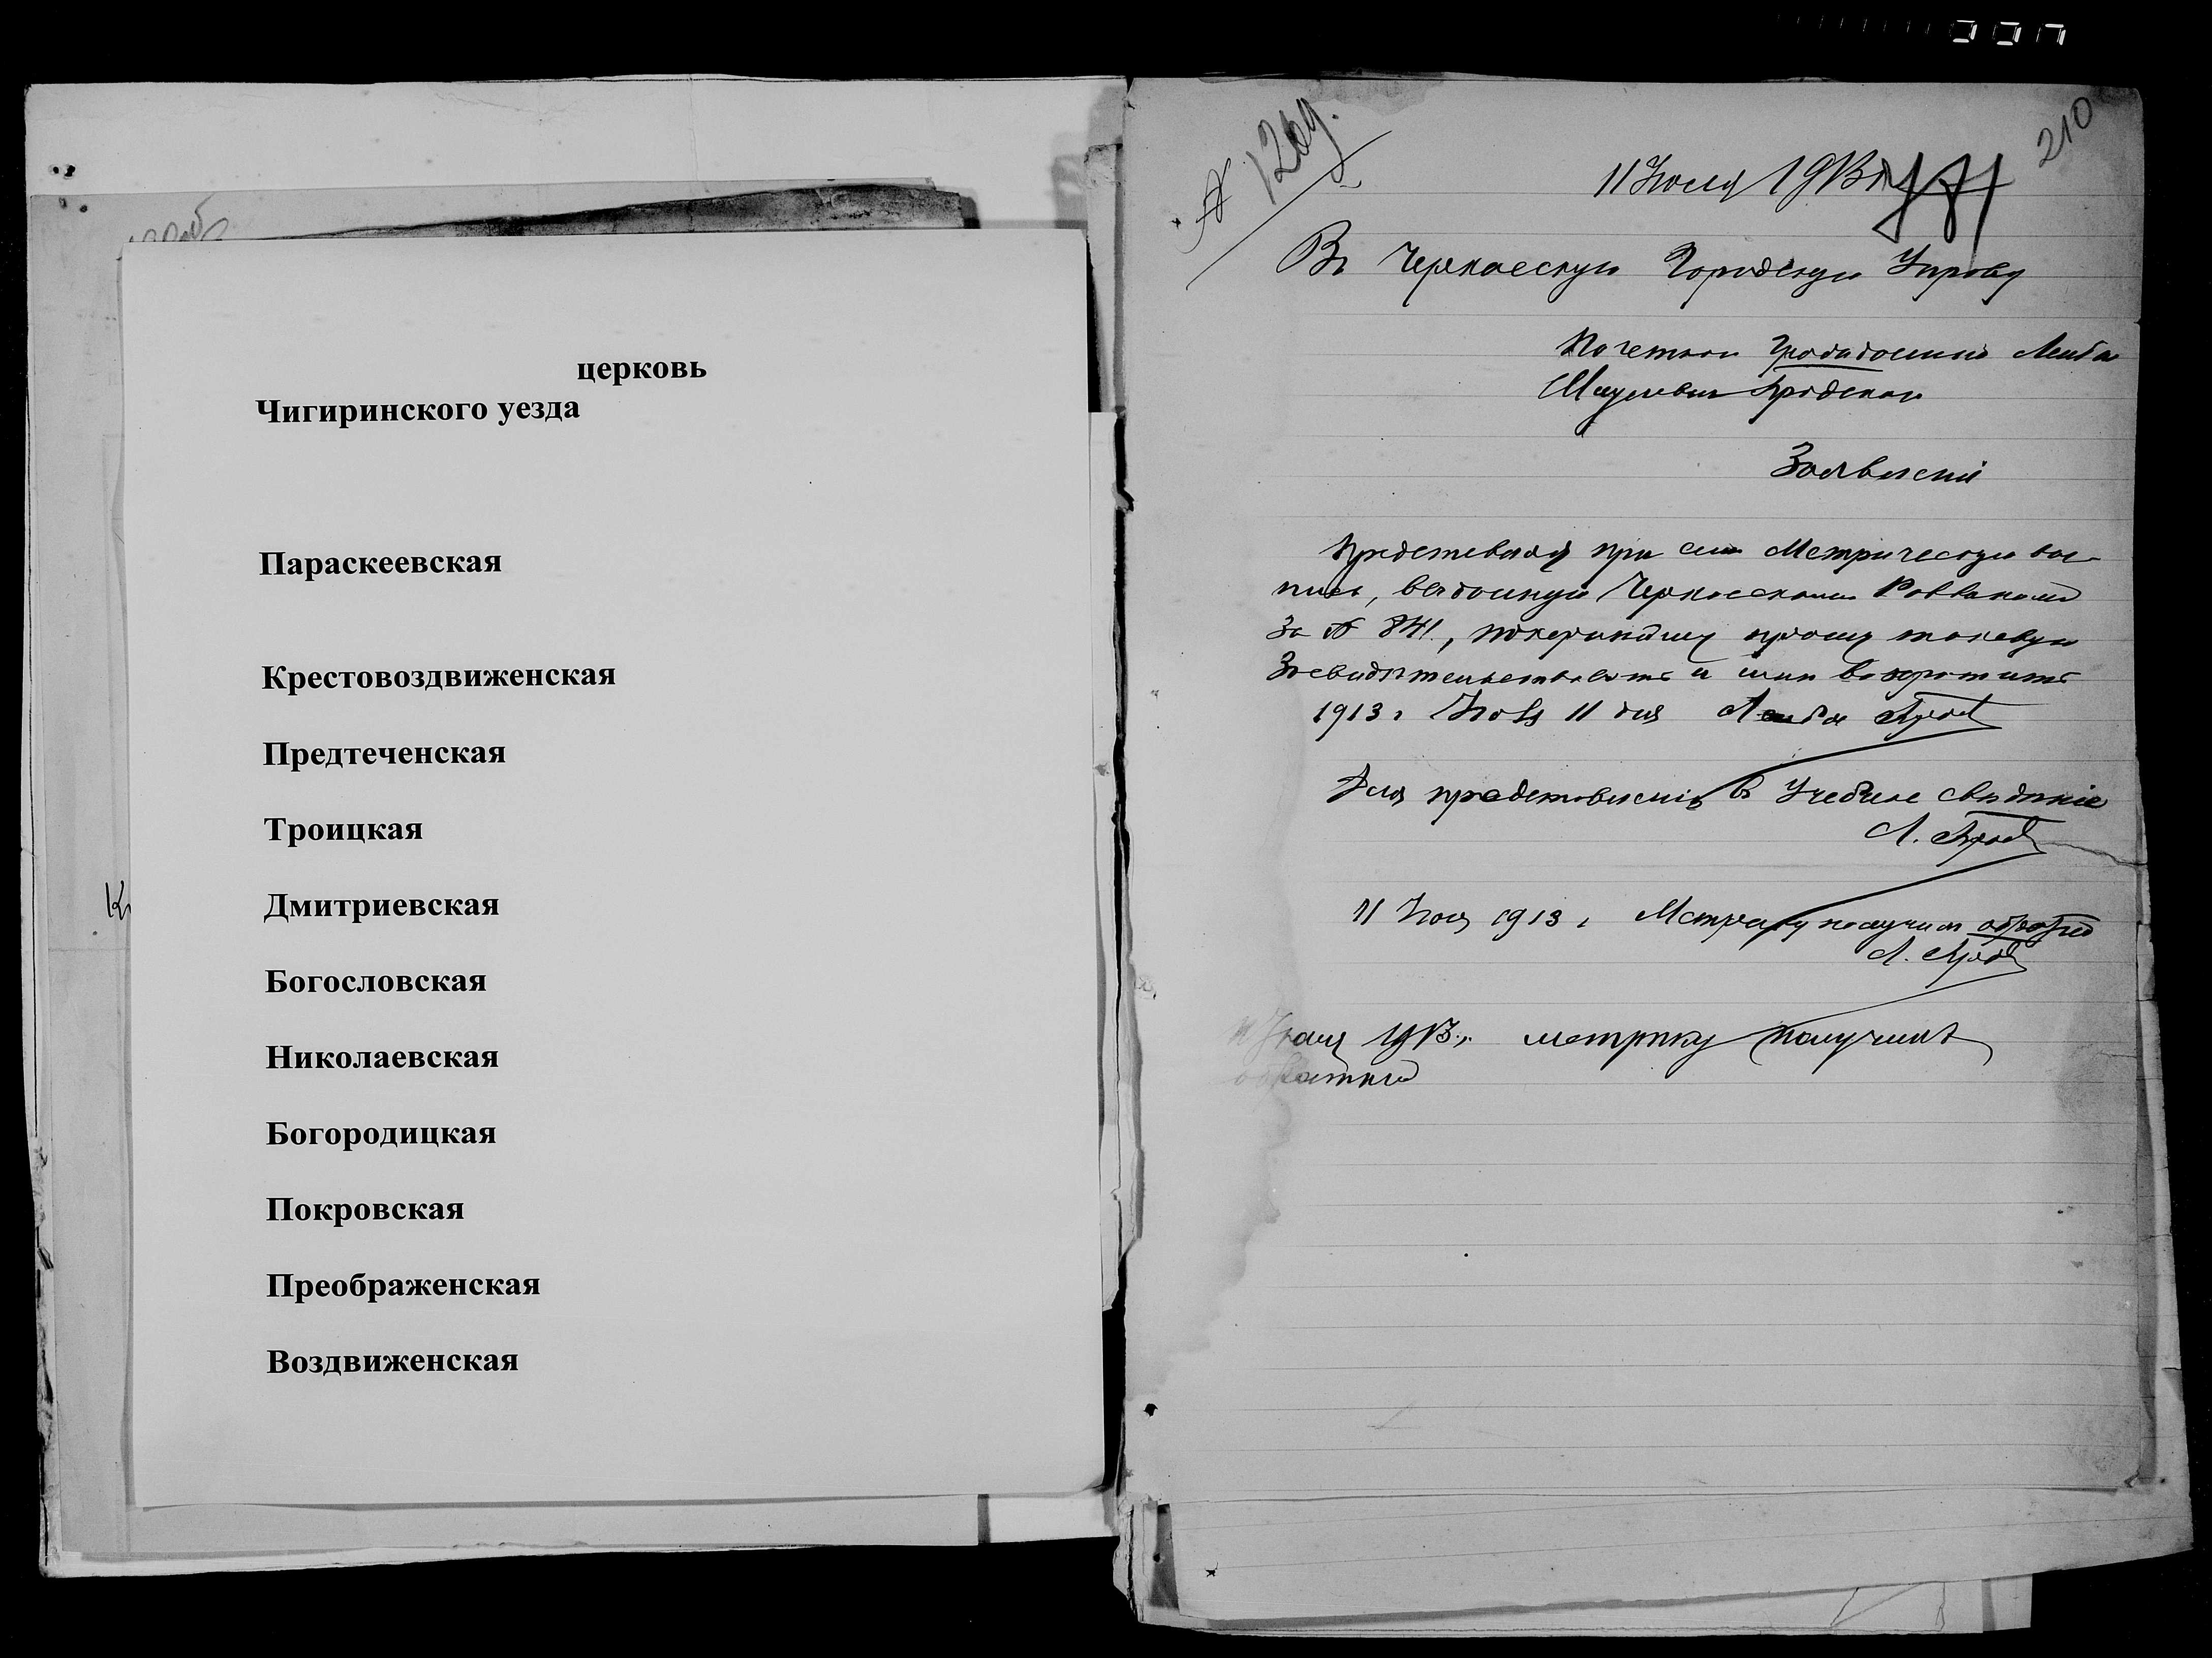 церковь
Чигиринского уезда
Параскеевская
Крестовоздвиженская
Предтеченская
Троицкая
Дмитриевская
Богословская
Николаевская
Богородицкая
Покровская
Преображенская
Воздвиженская
210
№ 1269.
11 Июля 1913 г
Въ Черкасскую Городскую Управу
Почетнаго Гражданина Лейба
Бродскаго
Заявленіе
Представляя при семъ Метрическую вы-
пись, выданную Черкасскимъ Раввиномъ
За № 841, покорнѣйше прошу таковую
Засвидѣтельствовать и мнѣ возвратить
1913 г Июля 11 дня Лейба Брод
Для представленія в Учебное
Л. Брод
11 Июля 1913 г Метрику получилъ обратно
Л. Брод
11 Июля 1913 г. метрику получилъ
обратно